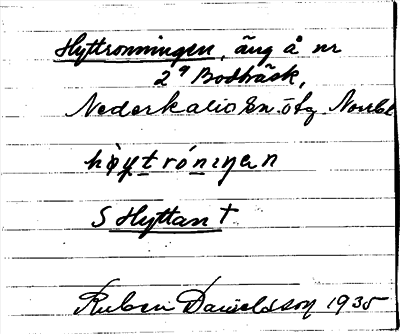 Hyttronningen, äng å nr
2⁹ Bodträsk,
Nederkalix sn. ö fg. Norrbt
hỳtróniŋen
S Hyttan †
Ruben Danielsson 1935